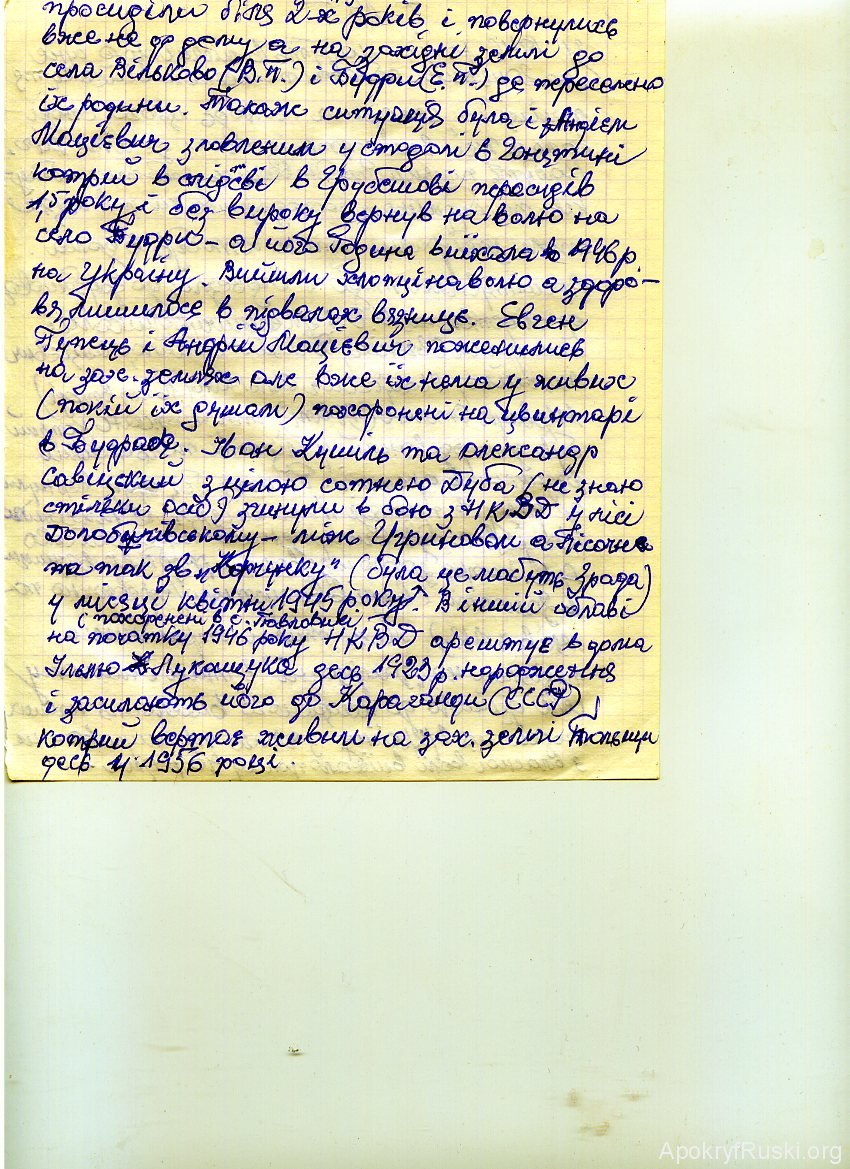 просиділи біля 2-х років і повернулись
вже не до дому а на західні землі до
села Вільково (В.П.) і Будри (Е.П.) де переселено
їх родини. Такаж ситуація була і з Андієм
Мацієвич зловленим у стодолі в Гонятині
котрий в слідстві в Грубешові пересидів
1,5 року, і без вироку вернув на волю на
село Будри – а його родина виїхала в 1946 р
на Україну. Вийшли хлопці на волю а здоро–
вя лишилося в підвалах вязниць. Евген
і Андрій Мацієвич поженились
на зах. землях але вже їх нема у живих
(покій їх душам) похоронені на цвинтарі
в Будрах. Іван Кушіль та Александр
Савіцкий з цілою сотнею Дуба (не знаю
стільки осіб) згинули в бою з НКВД у лісі
– між Угриновом а Пісочне
та так зв „ " (була це мабуть зрада)
у місяці квітні 1945 року. В іншій облаві
(похоронені в с. Павловичі
на початку 1946 року НКВД арештує в дома
Ілью Лукащука десь 1923 р. народження
і засилають його до Караганди (СССР)
котрий вертає живим на зах. землі Польщи
десь у 1956 році.
ApokryfRuski.org